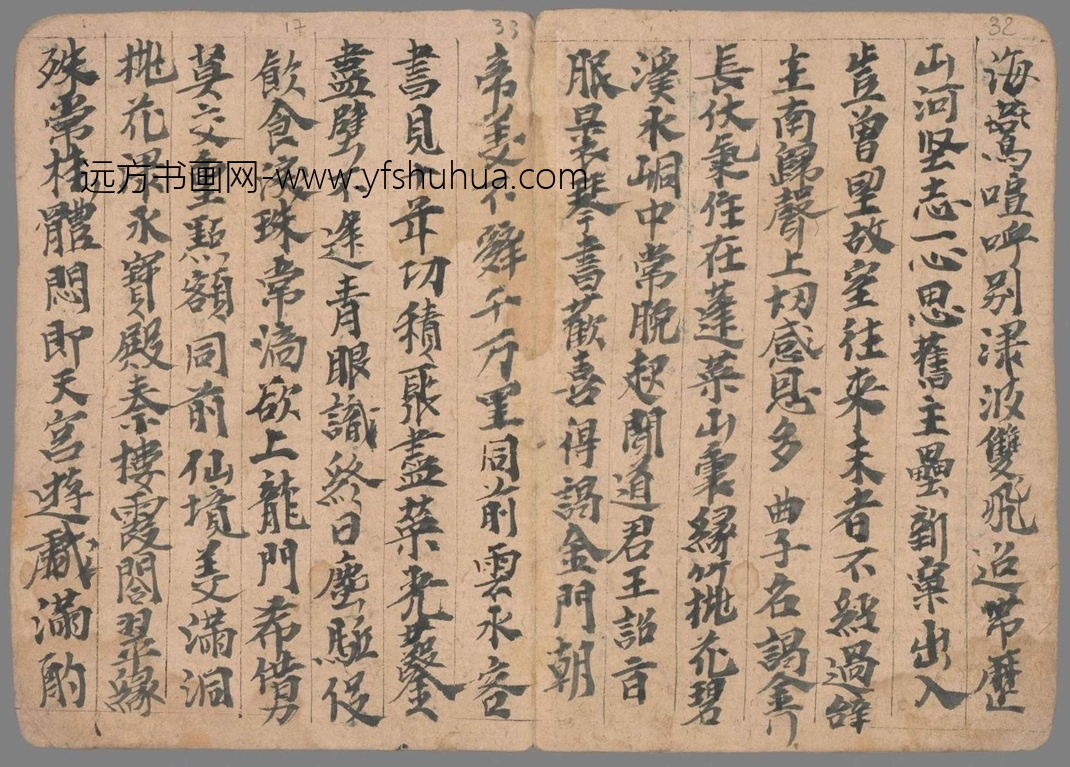 32
海鷰喧呼別淥波雙飛迢帶歷
山河坚志一心思舊主壘新窠出入
豈曾望故室往來未省不經過辞
主南歸聲上切感恩多 曲子名謁金門
長伏氣住在蓬萊山裏緑竹桃花碧
溪水峒中常晚起聞道君王詔旨
服裹琴書歡喜得謁金門朝
33
帝美不辭千万里同前雲水客
書見十年功積聚盡萤光鑿
盡壁不逢青眼識終日塵驅役
飲食淚珠常滴欲上龍門希借力
莫交重點額同前仙境美滿洞
桃花渌水寶殿秦樓霞閣翠緑
殊常挂體悶即天宮遊戲滿酌
17
远方书画网-www.yfshuhua.com